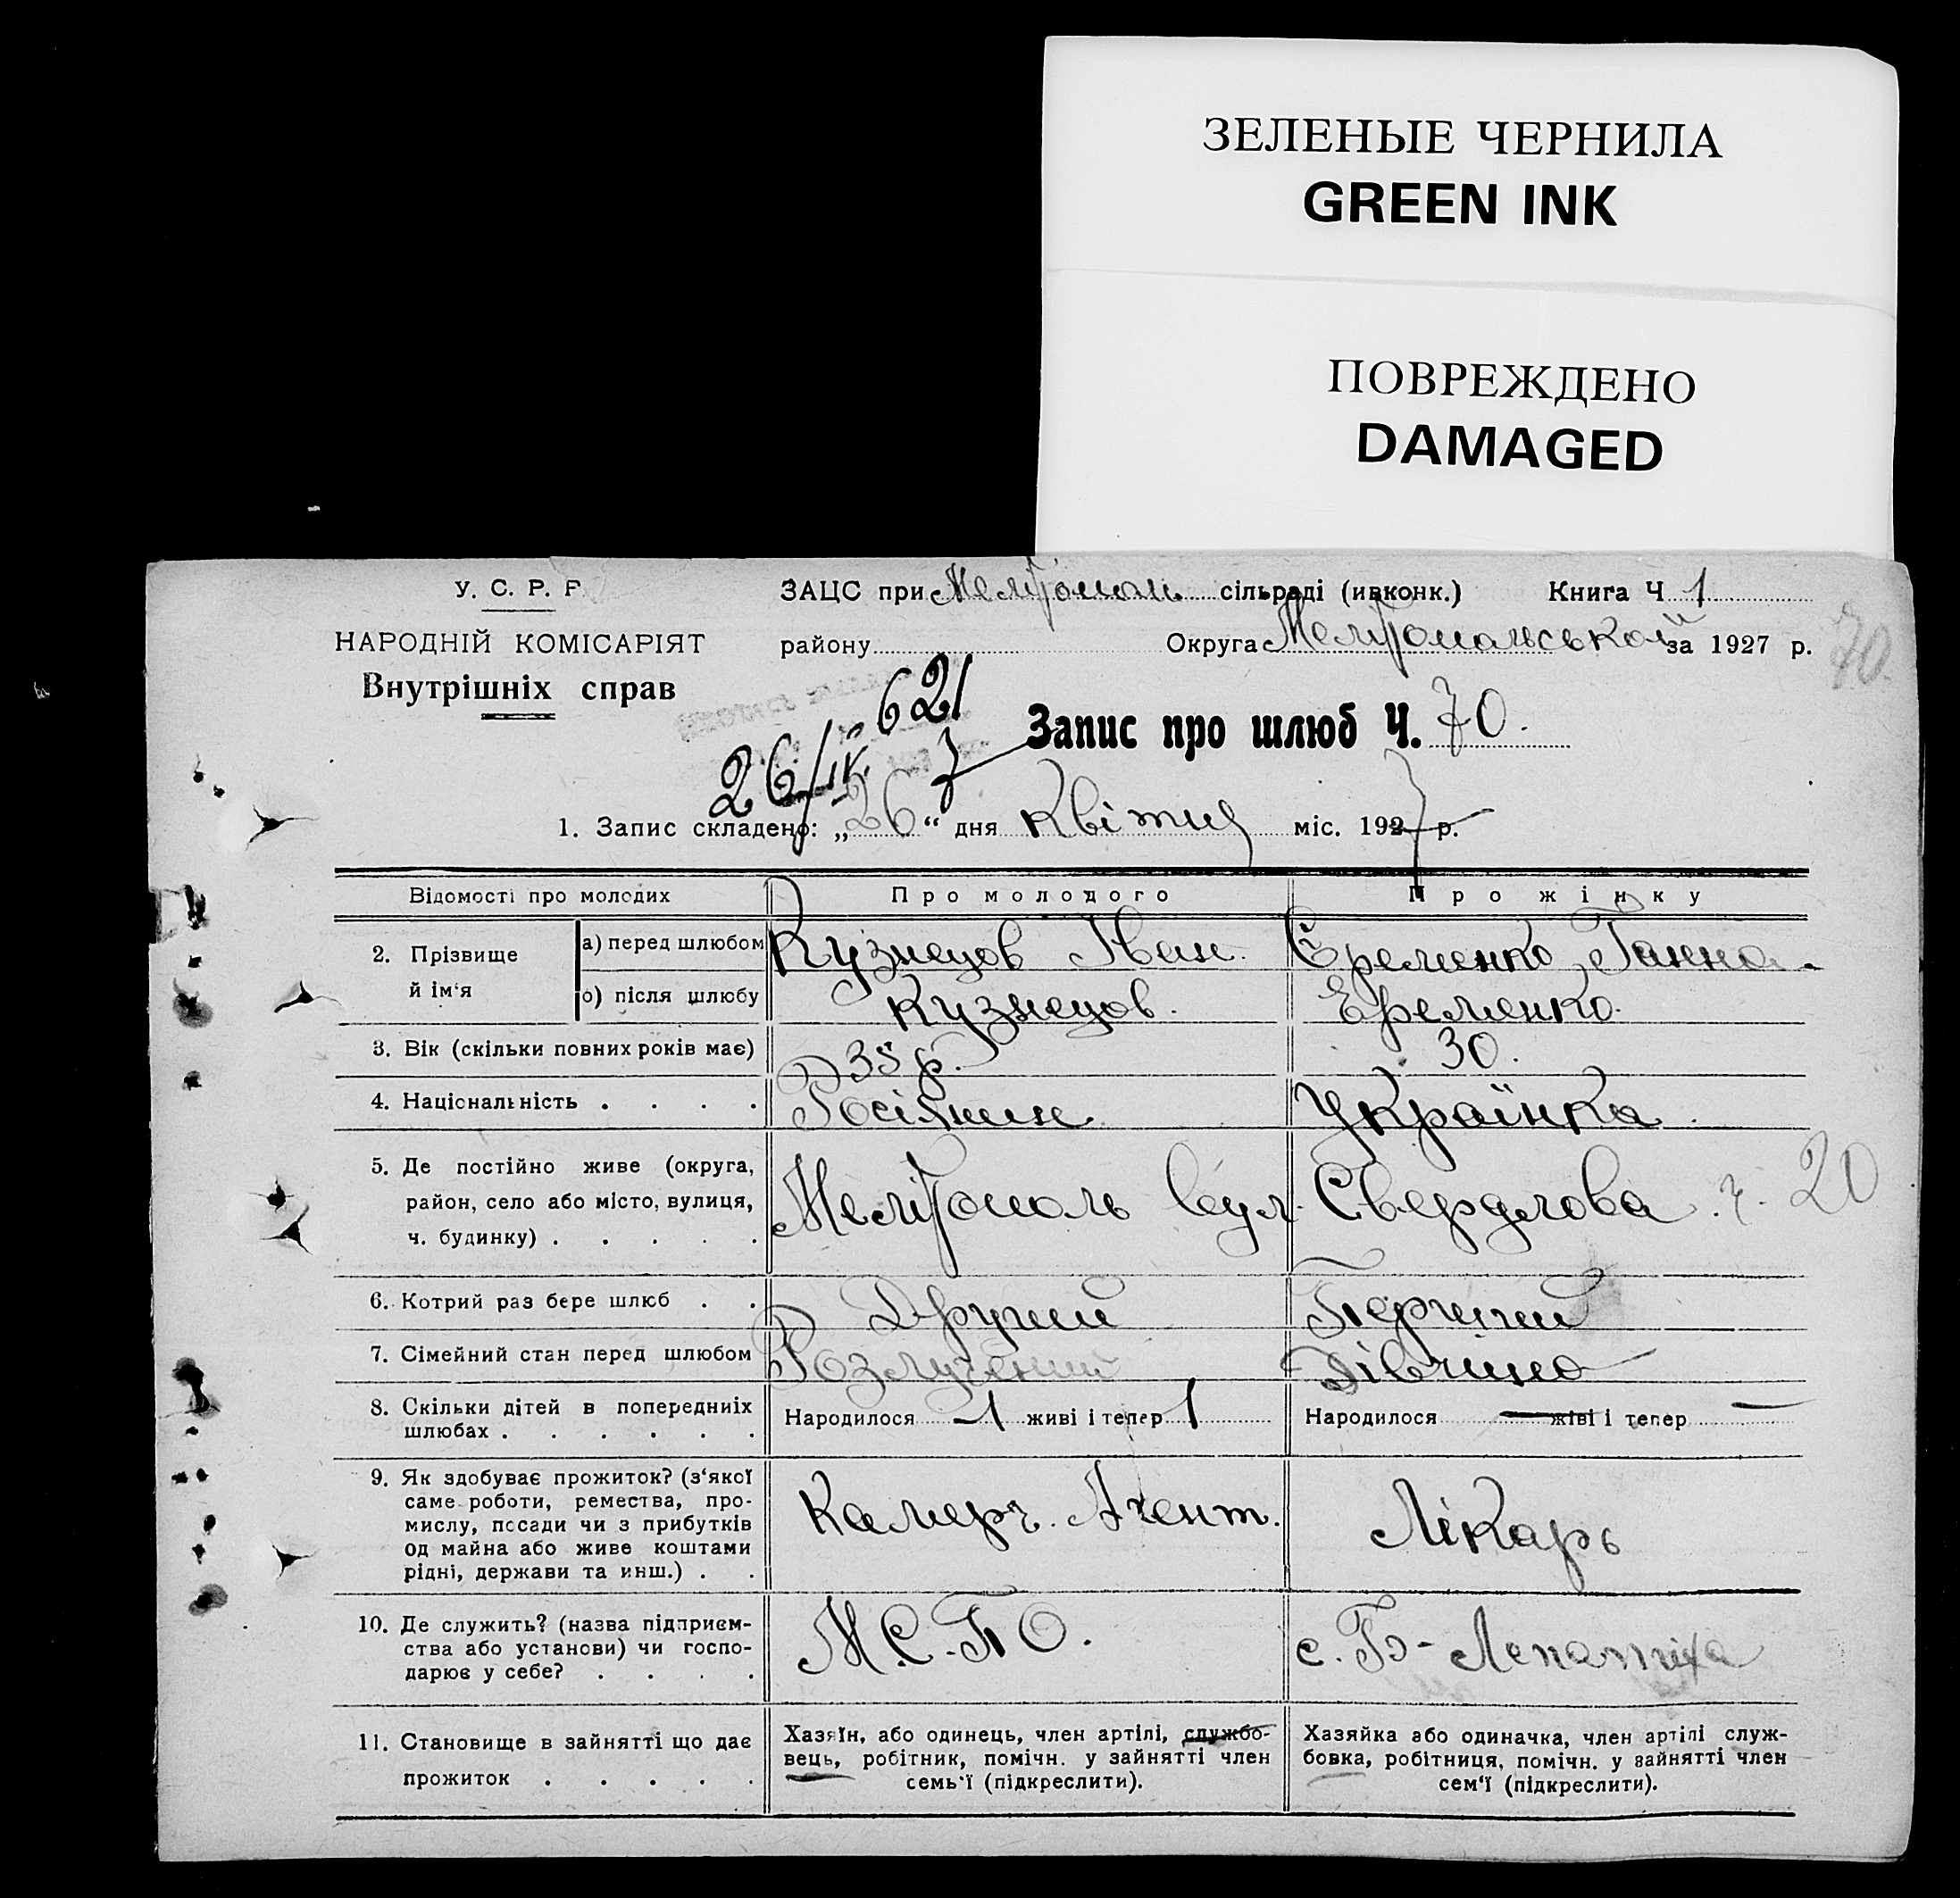 ЗЕЛЕНЫЕ ЧЕРНИЛА
GREEN INK
ПОВРЕЖДЕНО
DAMAGED
У. С. Р. Р.
ЗАЦС при Мелітополь сільраді (ивконк.) Книга Ч 1
НАРОДНІЙ КОМІСАРІЯТ
району Округа Мелітопольськой за 1927 р.
70.
Внутрішніх справ
621
26/IV. 7
Запис про шлюб Ч. 70.
1. Запис складено: „26“ дня Квітня міс. 1927 р.
Відомості про молодих Про молодого Про жінку
2. Прізвище й ім‘я
а) перед шлюбом Кузнецов Іван. Єременко Ганна.
б) після шлюбу Кузнецов. Еременко.
3. Вік (скільки повних років має) 35 р. 30.
4. Національність . . . . Росіянин Українка.
5. Де постійно живе (округа,
район, село або місто, вулиця,
ч. будинку) . . . . .
Мелітополь вул. Свердлова ч. 20
6. Котрий раз бере шлюб . . Другий Перший
7. Сімейний стан перед шлюбом Розлучений Дівчина
8. Скільки дітей в попередниіх
шлюбах . . . . . .
Народилося 1 живі і тепер 1 Народилося — живі і тепер —
9. Як здобуває прожиток? (з‘якої
саме роботи, ремества, про-
мислу, посади чи з прибутків
од майна або живе коштами
рідні, держави та инш.) . .
Камерч. Агент. Лікарь
10. Де служить? (назва підприєм-
ства або установи) чи госпо-
дарює у себе? . . . .
М.С.ПО. с. Б-Лепатиха
11. Становище в зайнятті що дає
прожиток . . . . .
Хазяїн, або одинець, член артілі, службо-
вець, робітник, помічн. у зайнятті член
семь‘ї (підкреслити).
Хазяйка або одиначка, член артілі служ-
бовка, робітниця, помічн. у зайнятті член
сем‘ї (підкреслити).